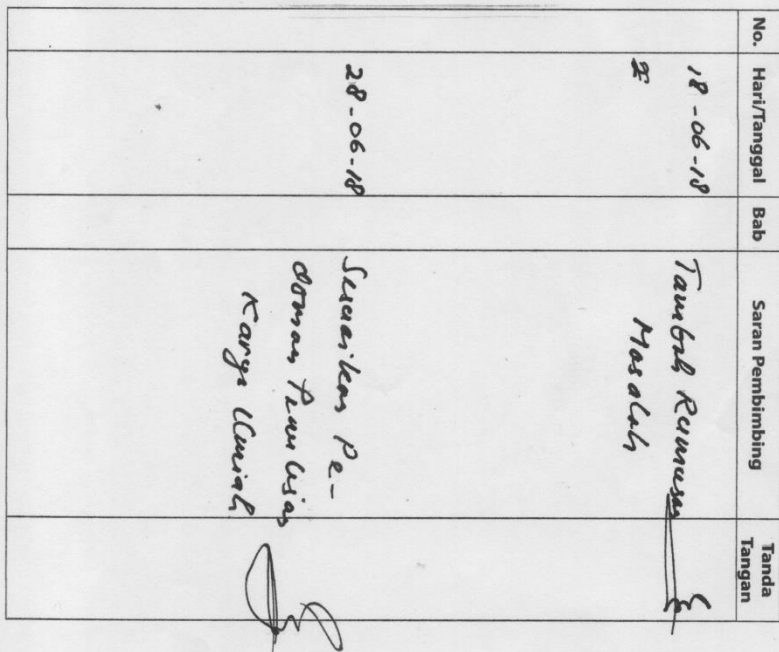 No. Hari/Tanggal Bab Saran Pembimbing Tanda Tangan
18-06-18 Tambah Rumusan
Masalah
28-06-18 Sesuaikan Pe-
doman Penulisan
Karya Ilmiah